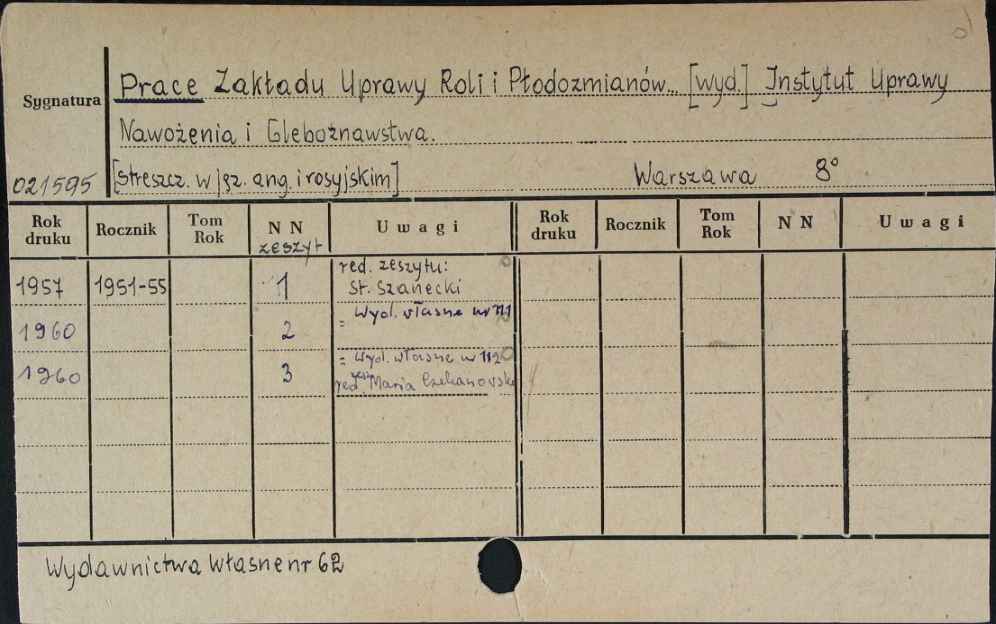 Sygnatura
Prace Zakładu Uprawy Roli i Płodozmianów... [wyd.] Instytut Uprawy
Nawożenia i Gleboznawstwa.
021595 [streszcz. w jęz. ang. i rosyjskim] Warszawa 8°
Rok druku Rocznik Tom Rok NN zeszyt Uwagi Rok druku Rocznik Tom Rok NN Uwagi
1957 1951-55 1 red. zeszytu: St. Szanecki
1960 2 = Wyd. własne nr 111
1960 3 = Wyd. własne nr 112
red. zesz. Maria Czekanowska
Wydawnictwa własne nr 62